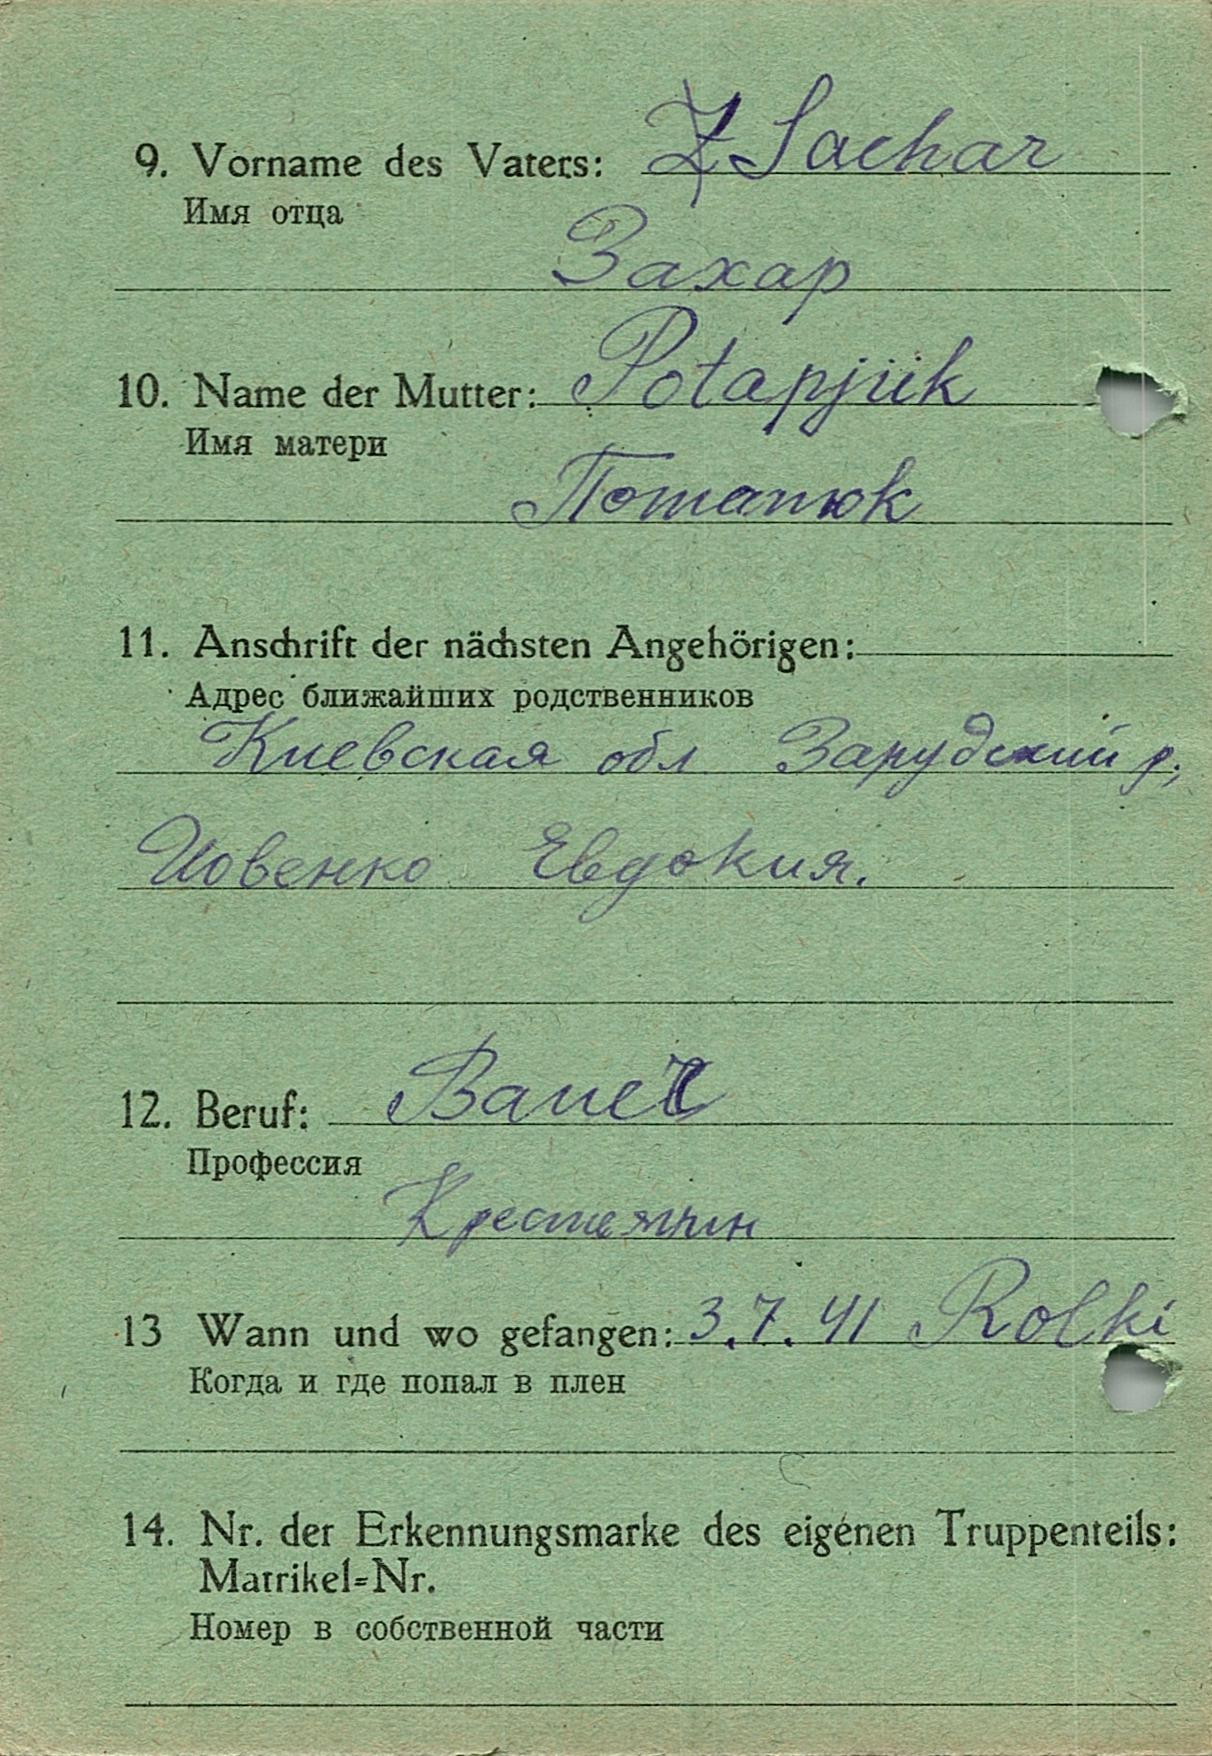 9. Vorname des Vaters: Sachar
Имя отца
Захар
10. Name der Mutter: Potapjük
Имя матери
Потапюк
11. Anschrift der nächsten Angehörigen:
Адрес ближайших родственников
Киевская обл Зарудский р,
Иовенко Евдокия.
12. Beruf: Bauer
Профессия
Крестьянин
13 Wann und wo gefangen: 3.7.41 Rolki
Когда и где попал в плен
14. Nr. der Erkennungsmarke des eigenen Truppenteils:
Matrikel=Nr.
Номер в собственной части